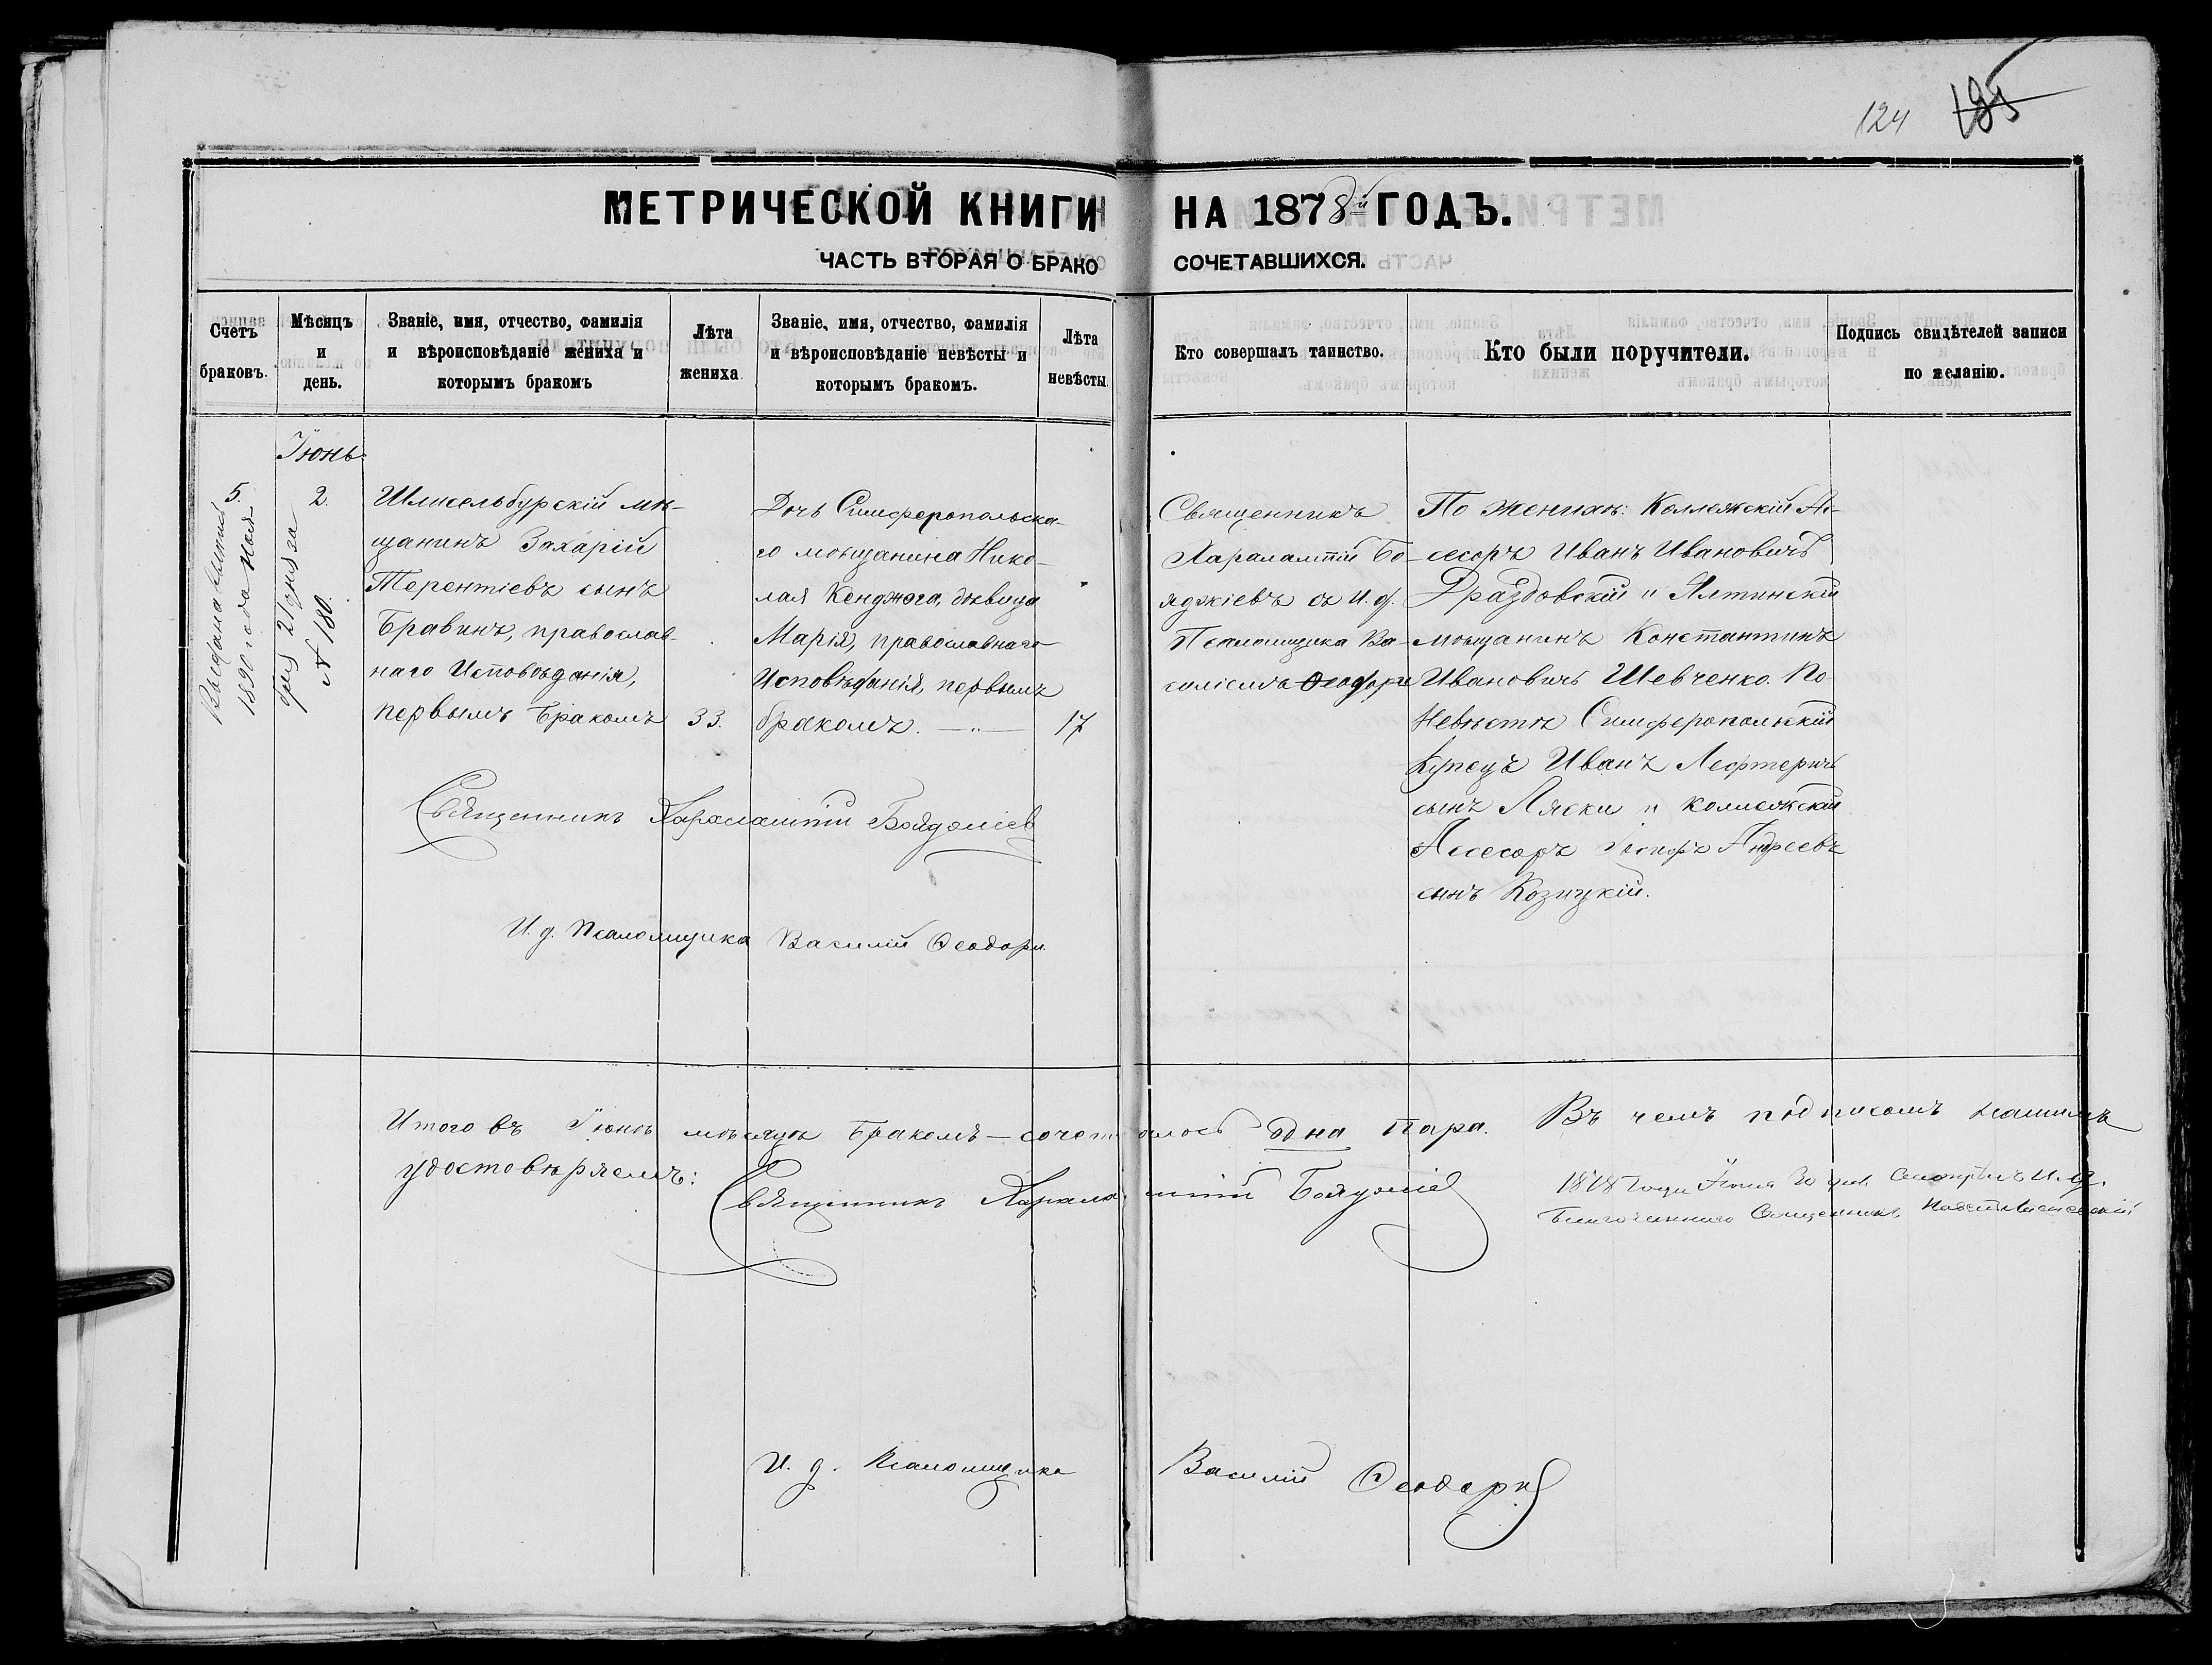 124 185
МЕТРИЧЕСКОЙ КНИГИ НА 1878й ГОДЪ.
ЧАСТЬ ВТОРАЯ О БРАКОСОЧЕТАВШИХСЯ.
Счетъ браковъ.
Мѣсяцъ и день.
Званіе, имя, отчество, фамилія
и вѣроисповѣданіе жениха и
которымъ бракомъ
Лѣта жениха
Званіе, имя, отчество, фамилія
и вѣроисповѣданіе невѣсты и
которымъ бракомъ.
Лѣта невѣсты.
Кто совершалъ таинство.
Кто были поручители.
Подпись свидѣтелей записи
по желанію.
Іюнь
5.
2.
1890 года
21 дня за
№ 180.
Шлисельбурскій мѣ-
щанинъ Захарій
Терентіевъ сынъ
Бравинъ, православ-
наго Исповѣданія,
первымъ бракомъ
33.
Дочь Симферопольска-
го мѣщанина Нико-
лая Кенджога, дѣвица
Марія, православнаго
Исповѣданія, первымъ
бракомъ. — " —
17
Священникъ
Харалампій Бо-
яджіевъ съ И. д.
Псаломщика Ва-
силіемъ Ѳеодори
По женихѣ: Коллежскій Ас-
сесоръ Иванъ Ивановичъ
Драздовскій и Ялтинскій
мѣщанинъ Константинъ
Ивановичъ Шевченко. По
Невѣстѣ Симферопольскій
Купецъ Иванъ
сынъ Ляски и коллежскій
Ассесоръ Андреевъ
сынъ Козицкій.
Священникъ Харалампій Бояджіев
И. д. Псаломщика Василій Ѳеодори.
Итого въ Іюнѣ мѣсяцѣ бракомъ — сочеталось одна пара. Въ чемъ подписомъ нашимъ
удостовѣряемъ:
Священникъ Харалампій Бояджіев
1878 года Іюня 20 дня Смотрѣлъ И. д.
Благочиннаго Священникъ
И. д. Псаломщика Василій Ѳеодори